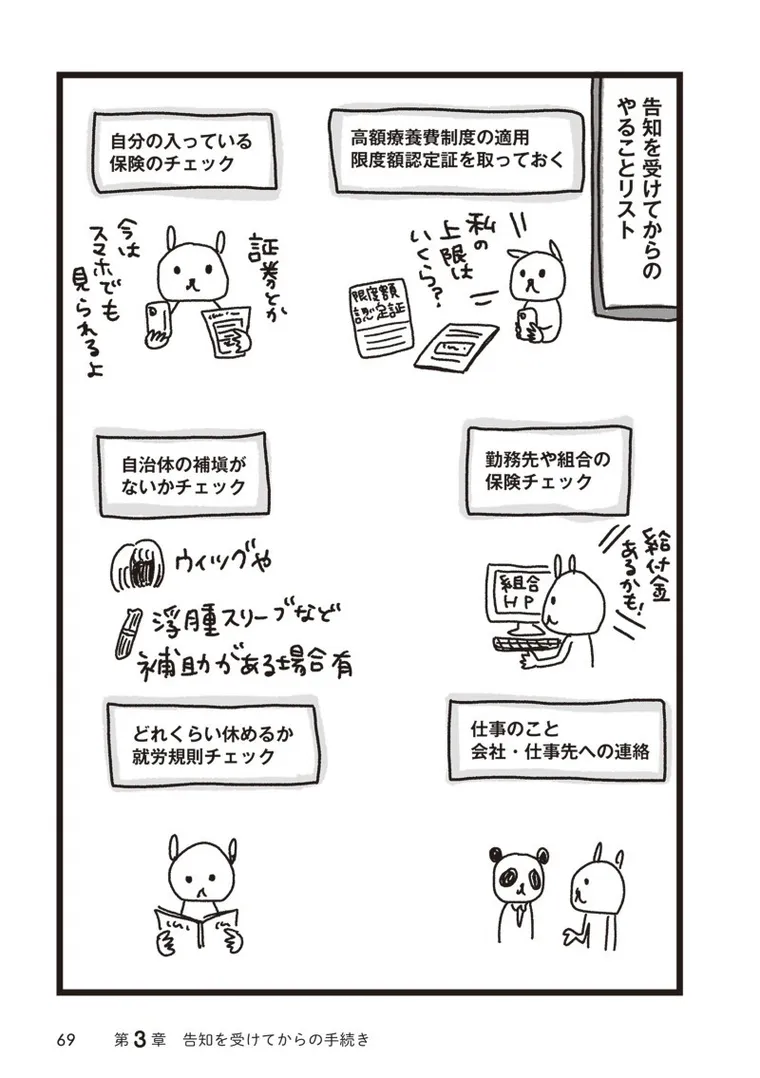 告知を受けてからの
やることリスト
高額療養費制度の適用
限度額認定証を取っておく
私の
上限は
いくら？
限度額
認定証
自分の入っている
保険のチェック
証券とか
今は
スマホでも
見られるよ
勤務先や組合の
保険チェック
給付金
あるかも！
組合
HP
自治体の補塡が
ないかチェック
ウィッグや
浮腫スリーブなど
補助がある場合有
仕事のこと
会社・仕事先への連絡
どれくらい休めるか
就労規則チェック
69 第3章 告知を受けてからの手続き